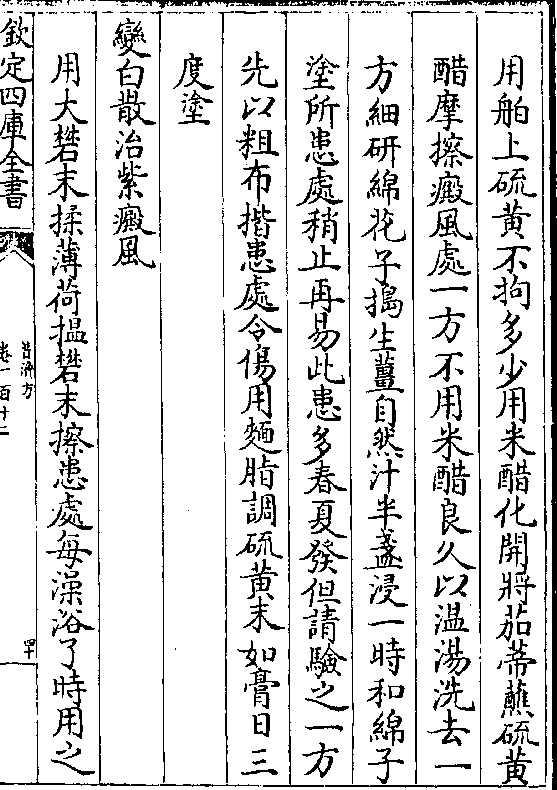 用舶上硫黄不拘多少用米醋化開將茄蒂蘸硫黄
醋摩擦癜風處一方不用米醋良久以温湯洗去一
方細研綿花子搗生薑自然汁半盞浸一時和綿子
塗所患處稍止再易此患多春夏發但請驗之一方
先以粗布揩患處令傷用麵脂調硫黄末如膏日三
度塗
變白散治紫癜風
用大礬末揉薄荷搵礬末擦患處每澡浴了時用之
欽定四庫全書
普濟方
卷一百十二
四十